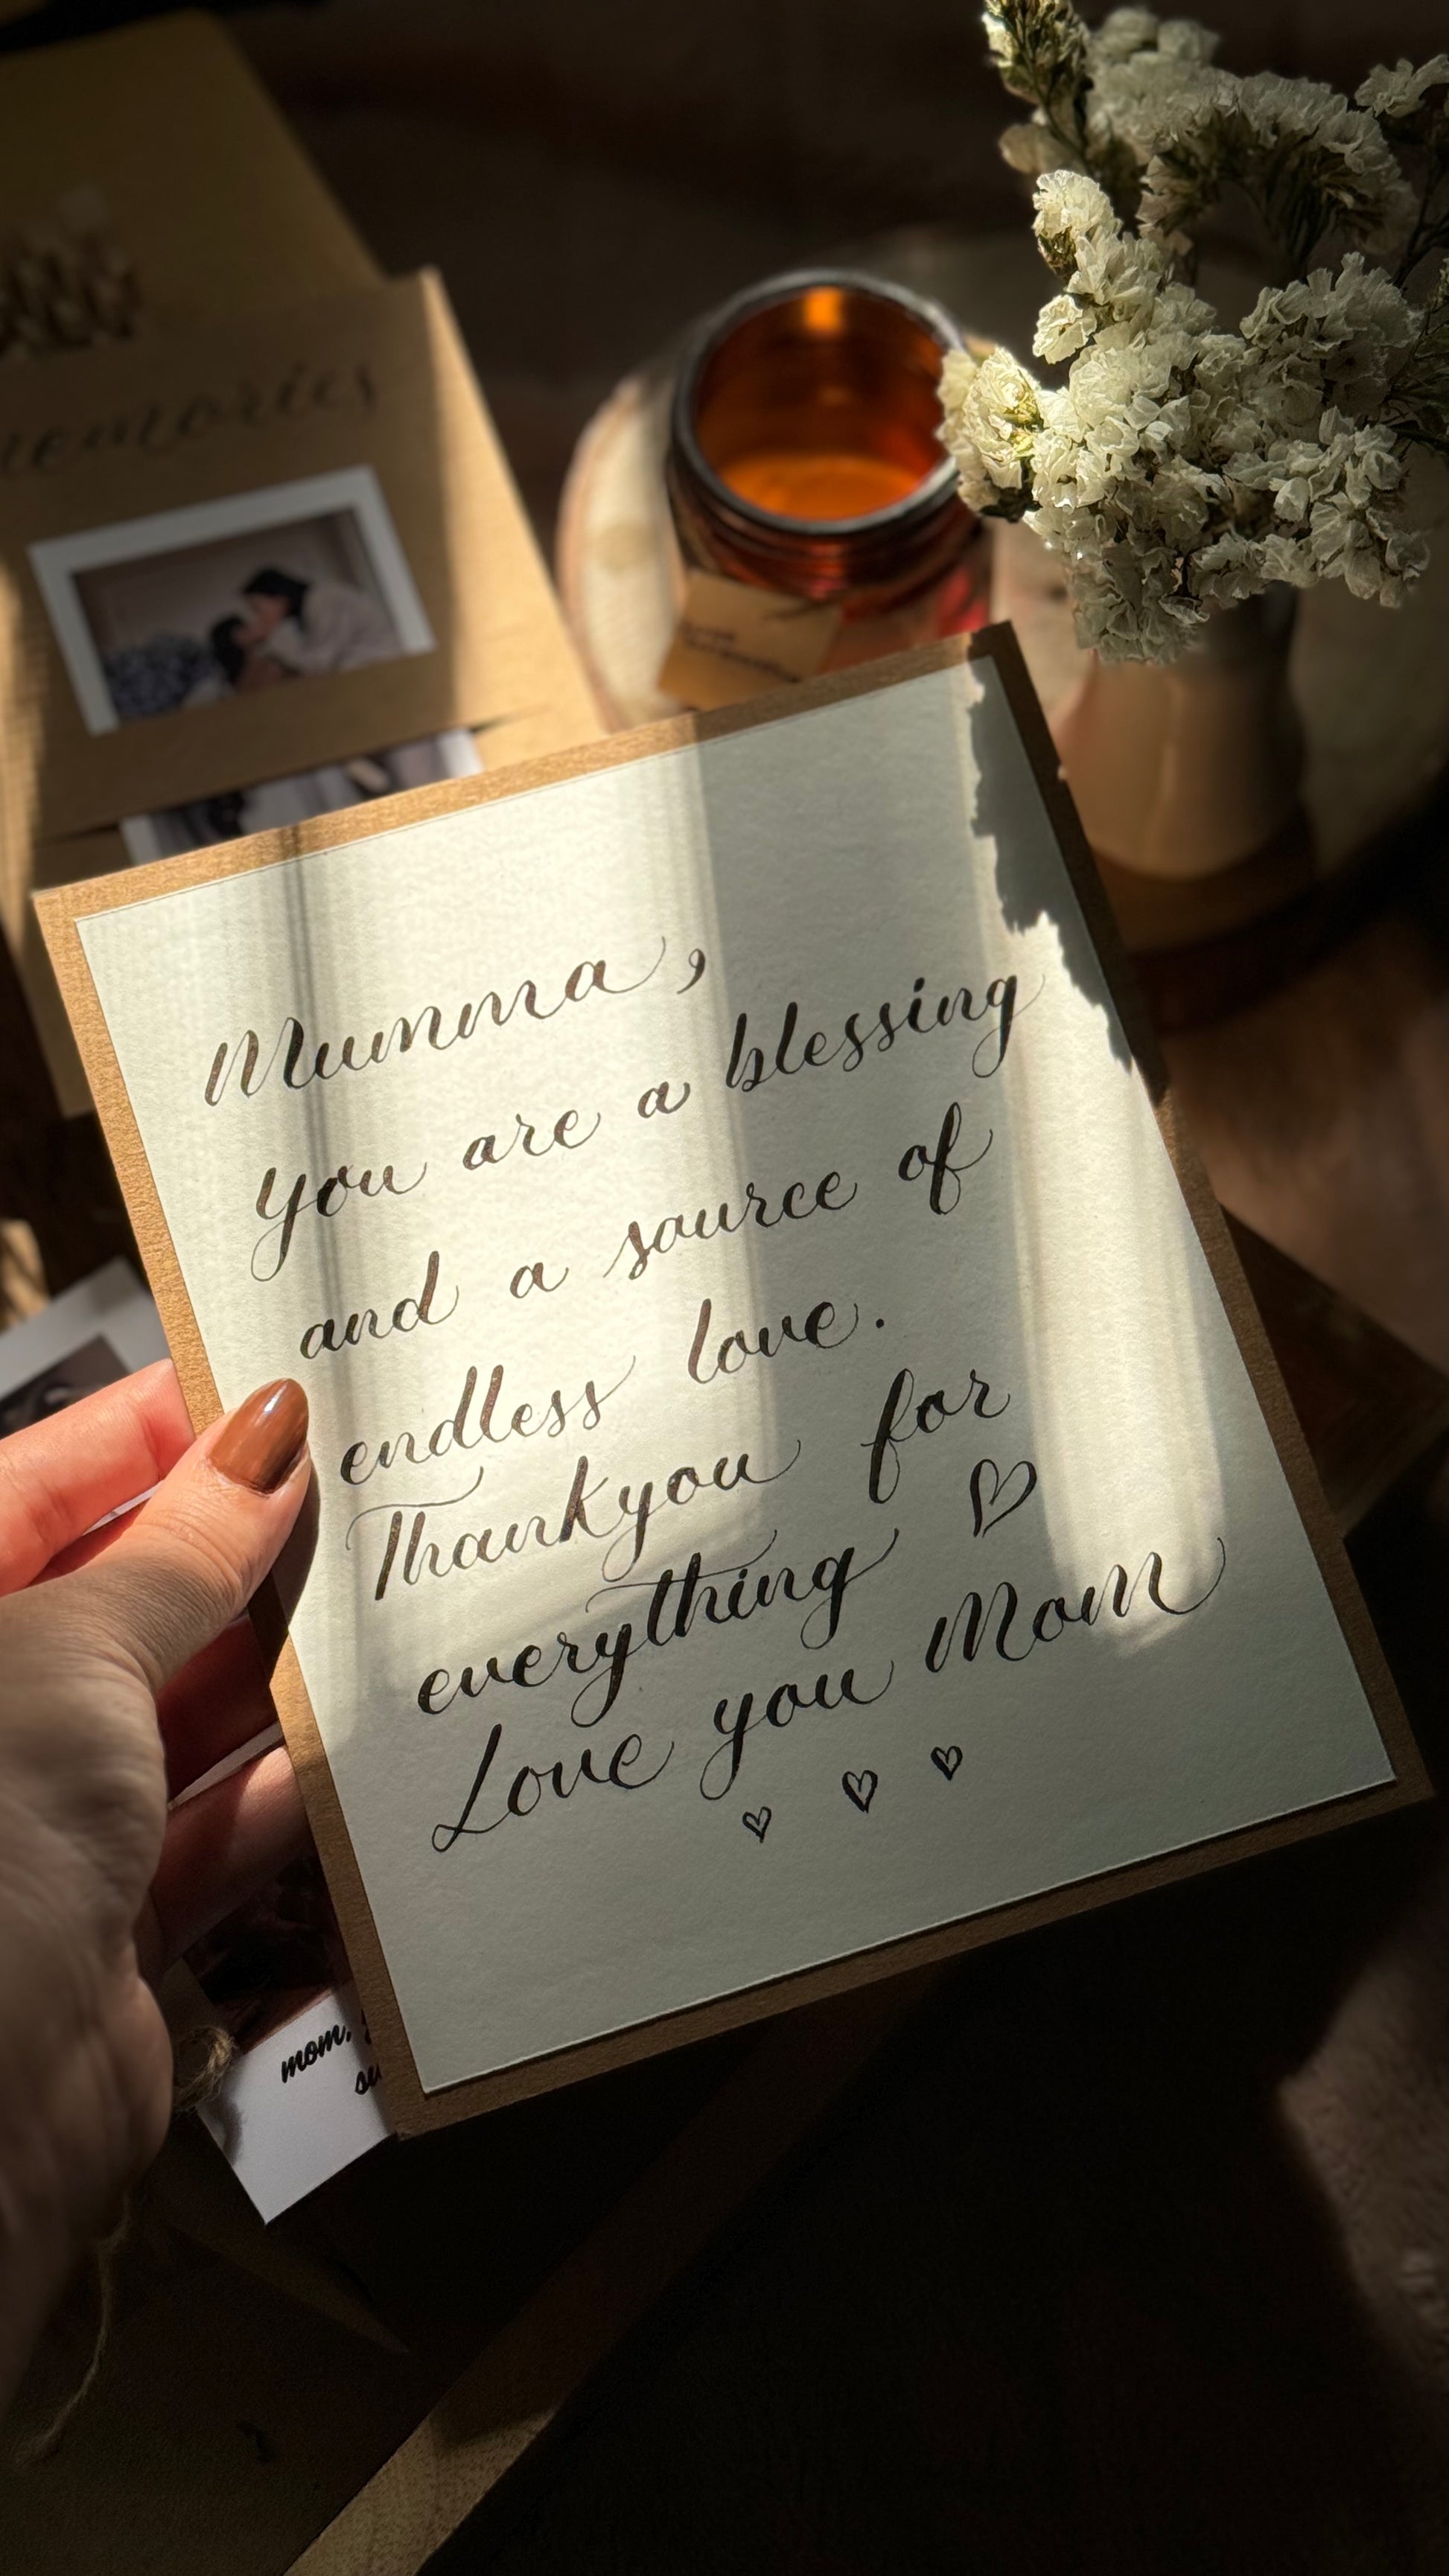 memories
Mumma,
you are a blessing
and a source of
endless love.
Thankyou for
everything ♡
Love you Mom
♡ ♡ ♡
mom,